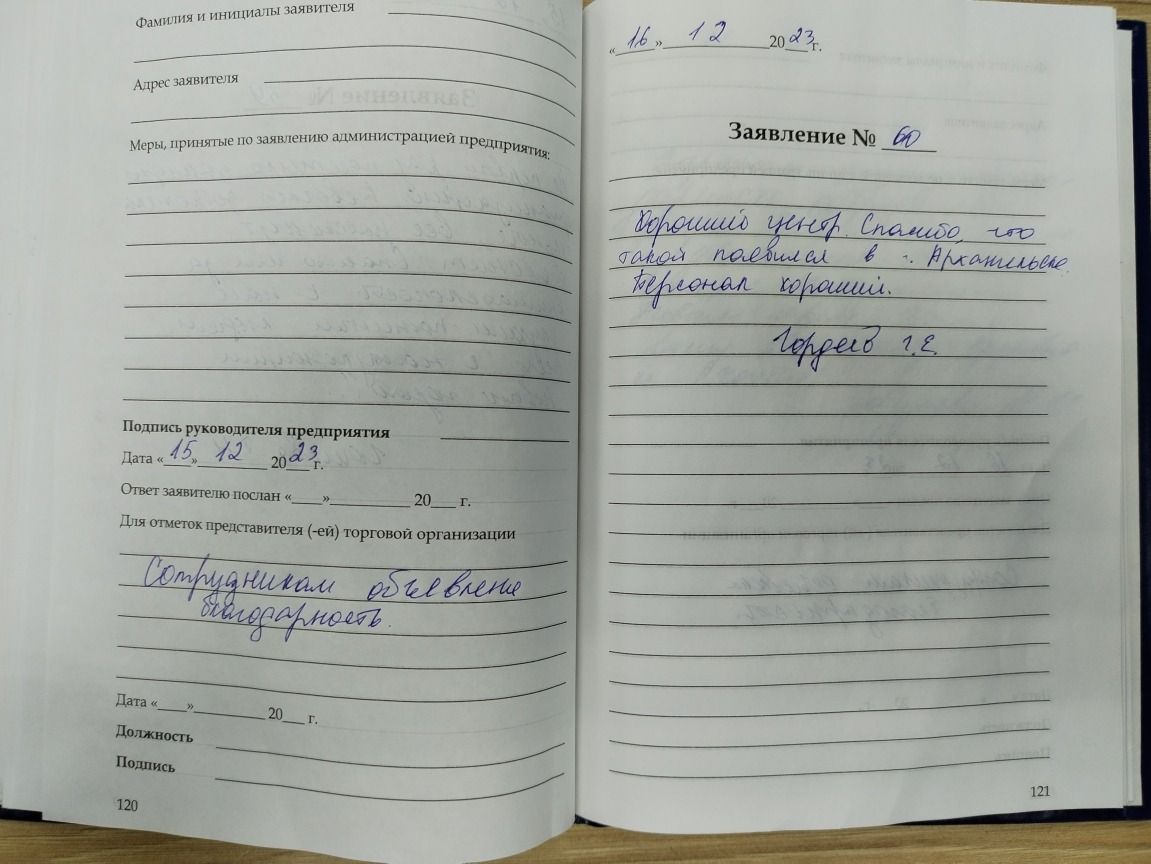 Фамилия и инициалы заявителя
Адрес заявителя
Меры, принятые по заявлению администрацией предприятия:
Подпись руководителя предприятия
Дата «15» 12 2023 г.
Ответ заявителю послан «____»__________ 20___ г.
Для отметок представителя (-ей) торговой организации
Сотрудникам объявлена
благодарность.
Дата «____»_________ 20___ г.
Должность
Подпись
120
«16» 12 2023 г.
Заявление № 60
Хороший центр. Спасибо, что
такой появился в г. Архангельске.
Персонал хороший.
Гордеев Г.Е.
121